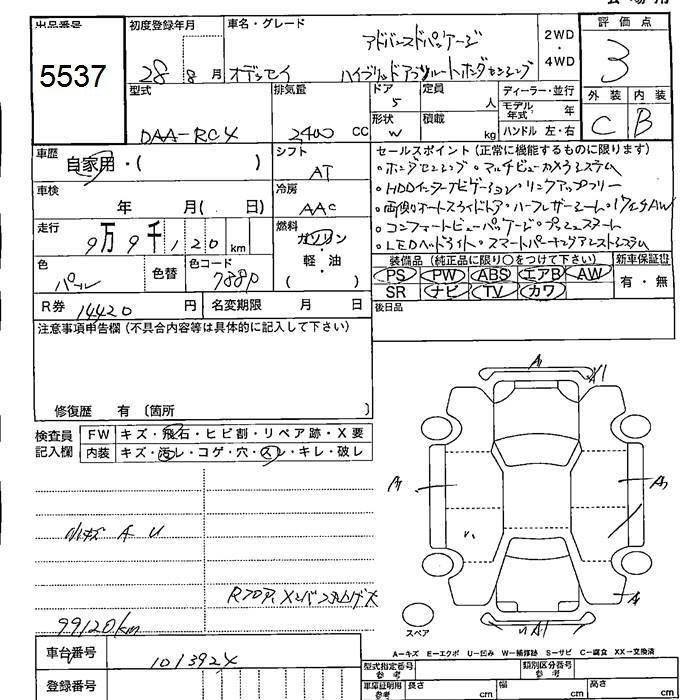 出品番号 初度登録年月 車名・グレード 評価点
5537 28年8月 オデッセイ アドバンスドパッケージ 2WD・4WD 3
ハイブリッドアブソルートホンダセンシング
型式 排気量 ドア 定員 ディーラー・並行 外装 内装
DAA-RC4 2400 CC 5 人 モデル年式 年 C B
形状 積載 ハンドル 左・右
W kg
車歴 シフト セールスポイント(正常に機能するものに限ります)
自家用・( ) AT ・ホンダセンシング・マルチビューカメラシステム
車検 冷房 ・HDDインターナビゲーション・リンクアップフリー
年 月( 日) AAC ・両側オートスライドドア・ハーフレザーシート・17インチAW
走行 燃料 ・コンフォートビューパッケージ・プッシュスタート
9万9千120km ガソリン ・LEDヘッドライト・スマートパーキングアシストシステム
軽・油
( )
色 色替 色コード 装備品(純正品に限り○をつけて下さい) 新車保証書
パール 788P PS PW ABS エアB AW 有・無
SR ナビ TV カワ
R券 14420 円 名変期限 月 日 後日品
注意事項申告欄(不具合内容等は具体的に記入して下さい)
修復歴 有 〔箇所 〕
検査員記入欄 FW キズ・飛石・ヒビ割・リペア跡・X要
内装 キズ・汚レ・コゲ・穴・スレ・キレ・破レ
A X1
A A
小キズ A U
A
99120km
スペア
U A1
A=キズ E=エクボ U=凹み W=補修跡 S=サビ C=腐食 XX=交換済
車台番号 1013924
型式指定番号 参考 類別区分番号 参考
登録番号
車庫証明用 参考 長さ cm 幅 cm 高さ cm